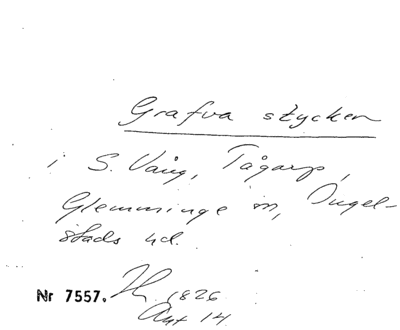 Grafva stycken
i S. Vång, Tågarp,
Glemminge sn, Ingel-
stads hd.
Nr 7557. 1826
Ant 14